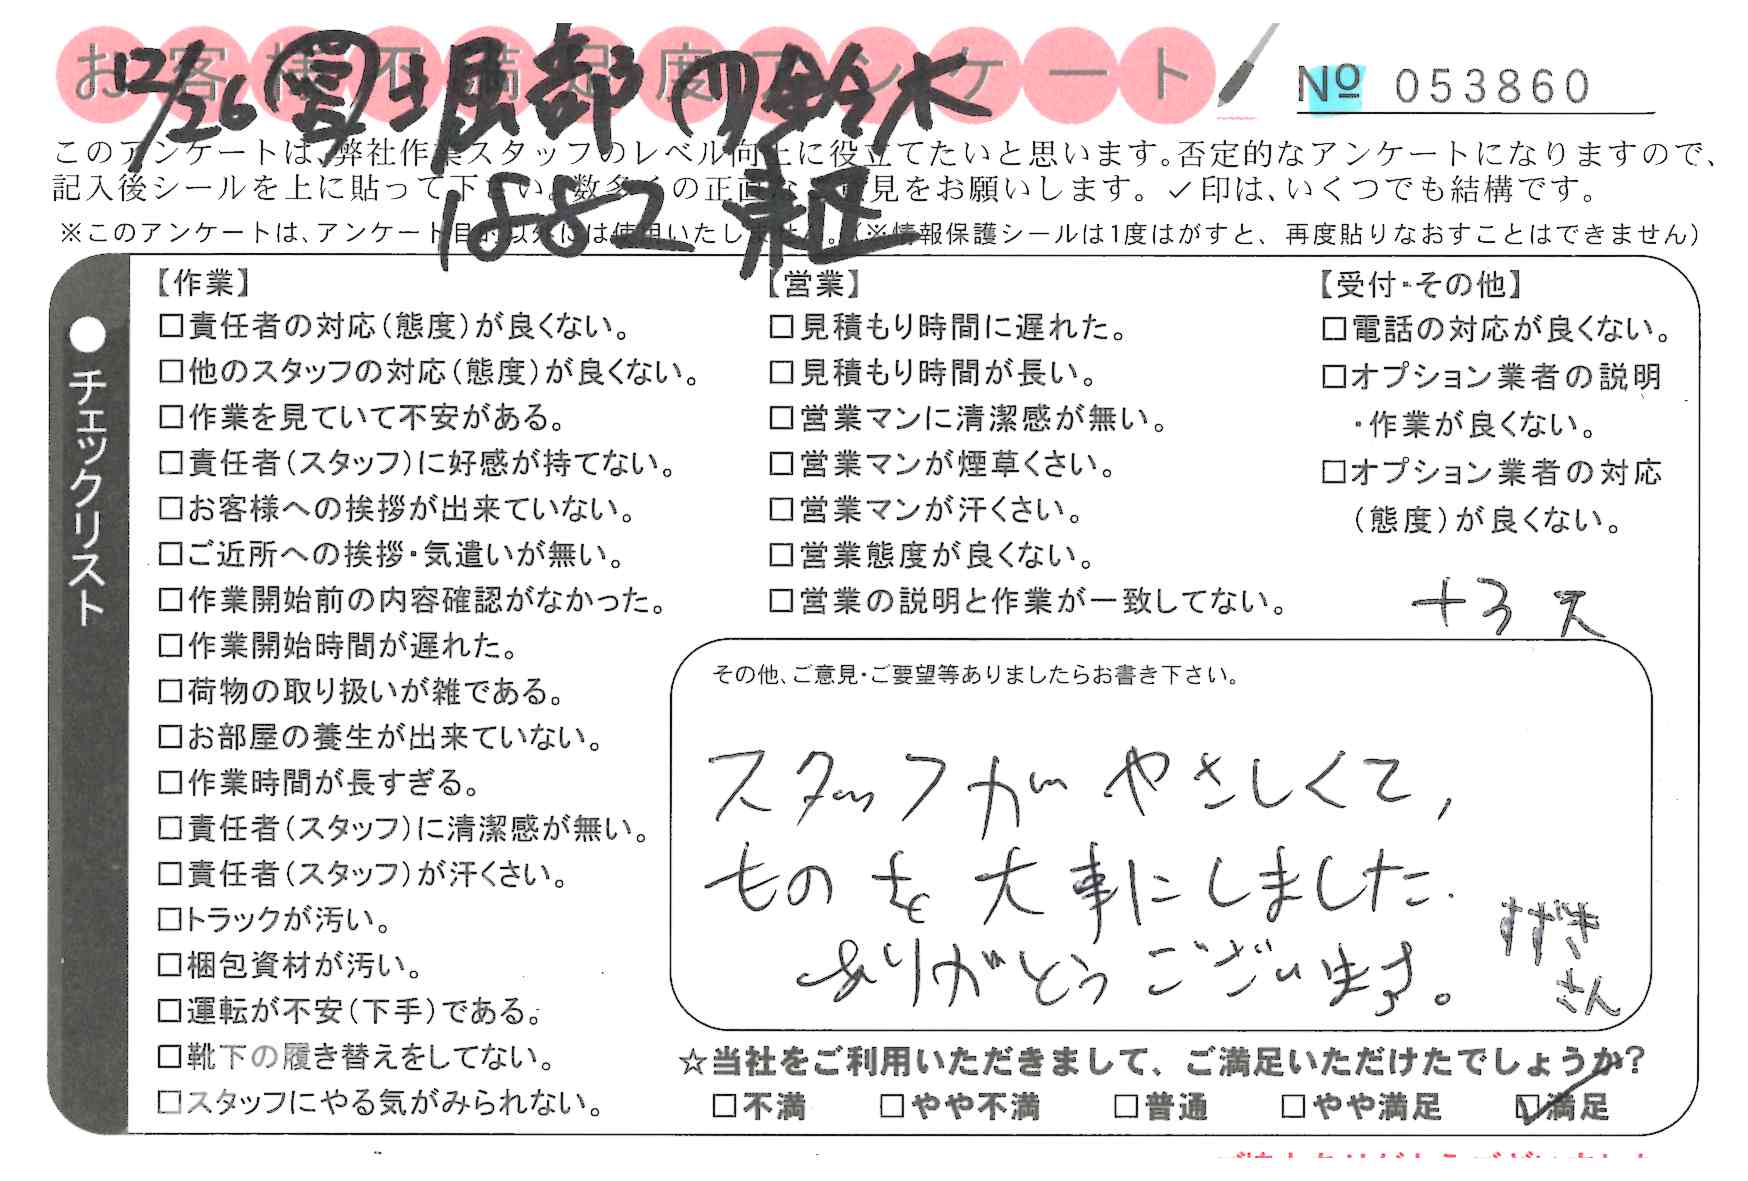 お客様不満足度アンケート
№ 053860
12/26 (営)堀部 (作)鈴木
1882 東区
このアンケートは、弊社作業スタッフのレベル向上に役立てたいと思います。否定的なアンケートになりますので、
記入後シールを上に貼って下さい。数多くの正直なご意見をお願いします。✓印は、いくつでも結構です。
※このアンケートは、アンケート目的以外には使用いたしません。(※情報保護シールは1度はがすと、再度貼りなおすことはできません)
●チェックリスト
【作業】
□責任者の対応(態度)が良くない。
□他のスタッフの対応(態度)が良くない。
□作業を見ていて不安がある。
□責任者(スタッフ)に好感が持てない。
□お客様への挨拶が出来ていない。
□ご近所への挨拶・気遣いが無い。
□作業開始前の内容確認がなかった。
□作業開始時間が遅れた。
□荷物の取り扱いが雑である。
□お部屋の養生が出来ていない。
□作業時間が長すぎる。
□責任者(スタッフ)に清潔感が無い。
□責任者(スタッフ)が汗くさい。
□トラックが汚い。
□梱包資材が汚い。
□運転が不安(下手)である。
□靴下の履き替えをしてない。
□スタッフにやる気がみられない。
【営業】
□見積もり時間に遅れた。
□見積もり時間が長い。
□営業マンに清潔感が無い。
□営業マンが煙草くさい。
□営業マンが汗くさい。
□営業態度が良くない。
□営業の説明と作業が一致してない。
【受付・その他】
□電話の対応が良くない。
□オプション業者の説明
・作業が良くない。
□オプション業者の対応
(態度)が良くない。
+3
その他、ご意見・ご要望等ありましたらお書き下さい。
スタッフが やさしくて,
ものを大事にしました.
ありがとうございます。
すずき
さん
☆当社をご利用いただきまして、ご満足いただけたでしょうか?
□不満 □やや不満 □普通 □やや満足 ☑満足